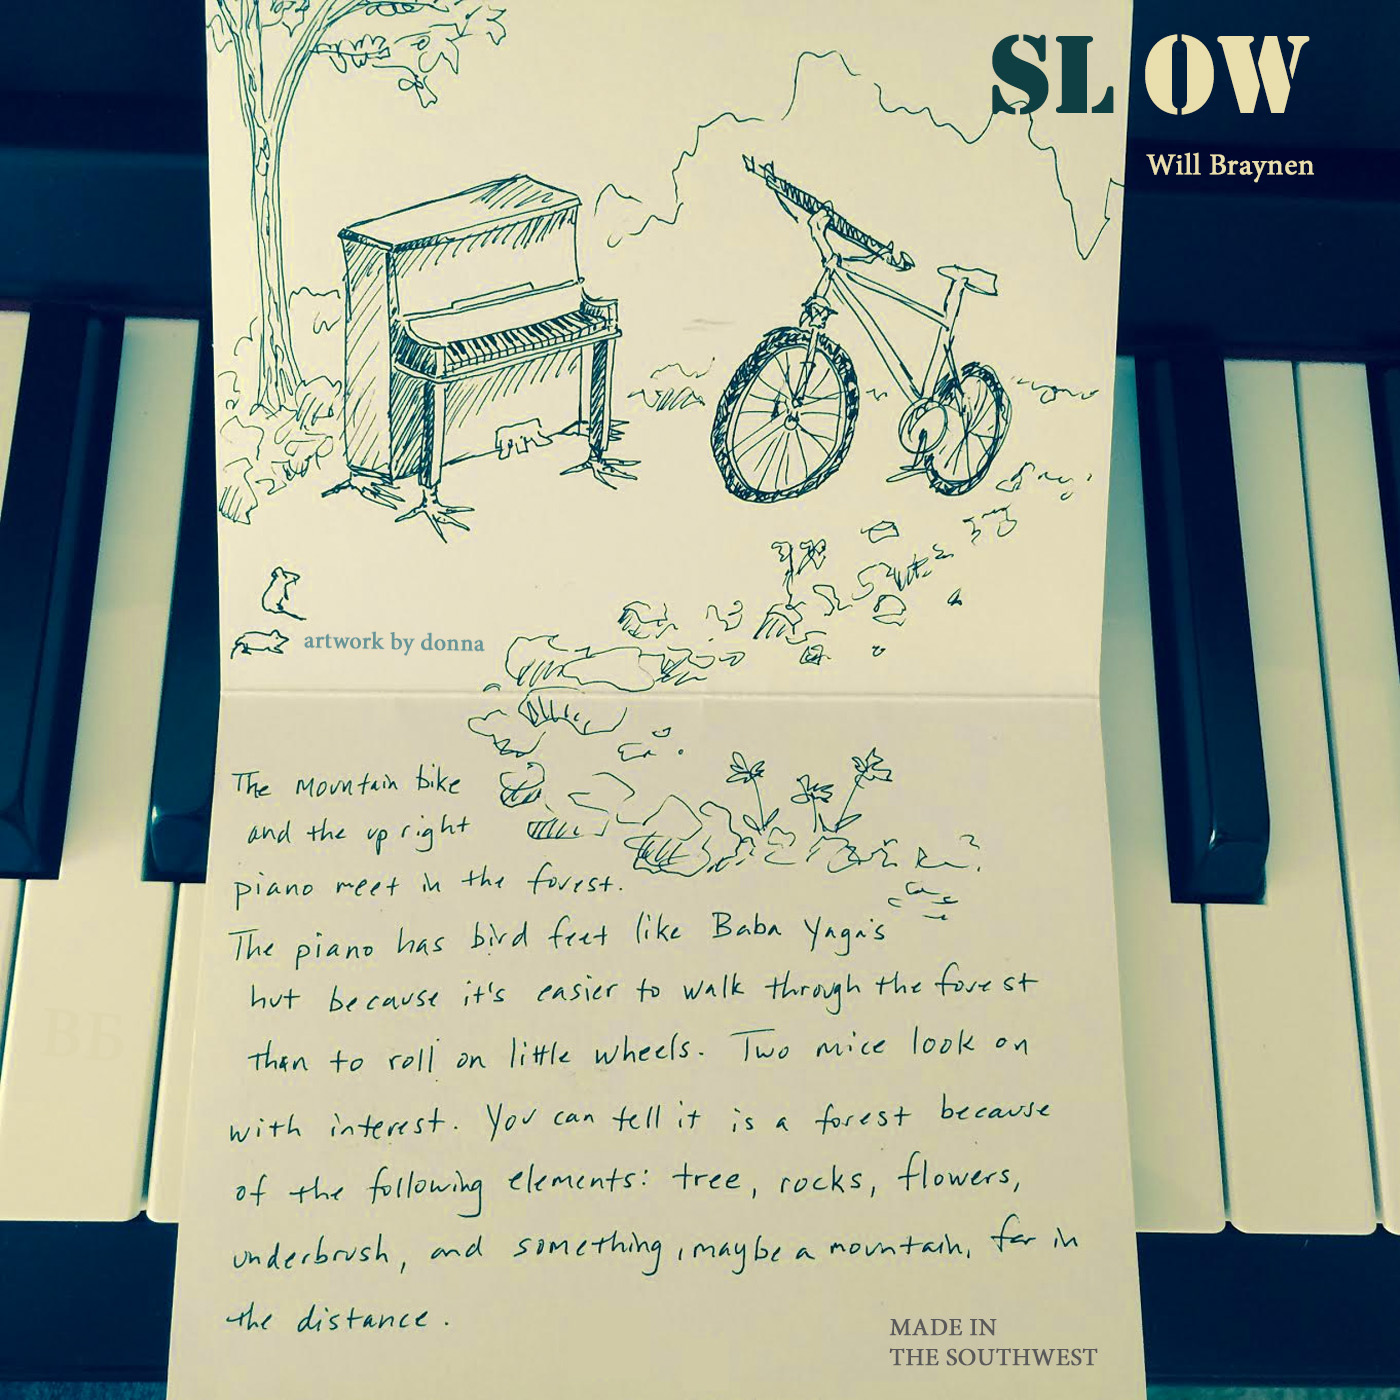 SLOW
Will Braynen
artwork by donna
The mountain bike
and the upright
piano meet in the forest.
The piano has bird feet like Baba Yaga's
hut because it's easier to walk through the forest
than to roll on little wheels. Two mice look on
with interest. You can tell it is a forest because
of the following elements: tree, rocks, flowers,
underbrush, and something, maybe a mountain, far in
the distance.
MADE IN
THE SOUTHWEST